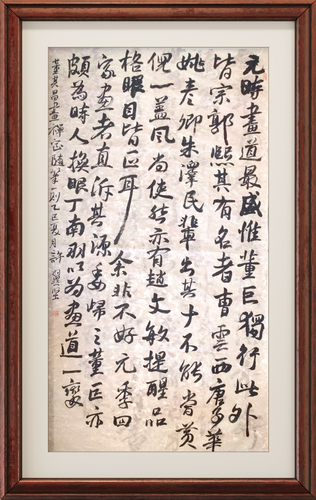 元時畫道最盛惟董巨獨行此外
皆宗郭熙其有名者曹雲西唐子華
姚彥卿朱澤民輩出其十不能當黃
倪一蓋風尚使然亦有趙文敏提醒品
格眼目皆正耳余非不好元季四
家畫者直泝其源委歸之董巨亦
頗為時人換眼丁南羽以為畫道一變
董其昌畫禪室隨筆一則乙巳夏月許